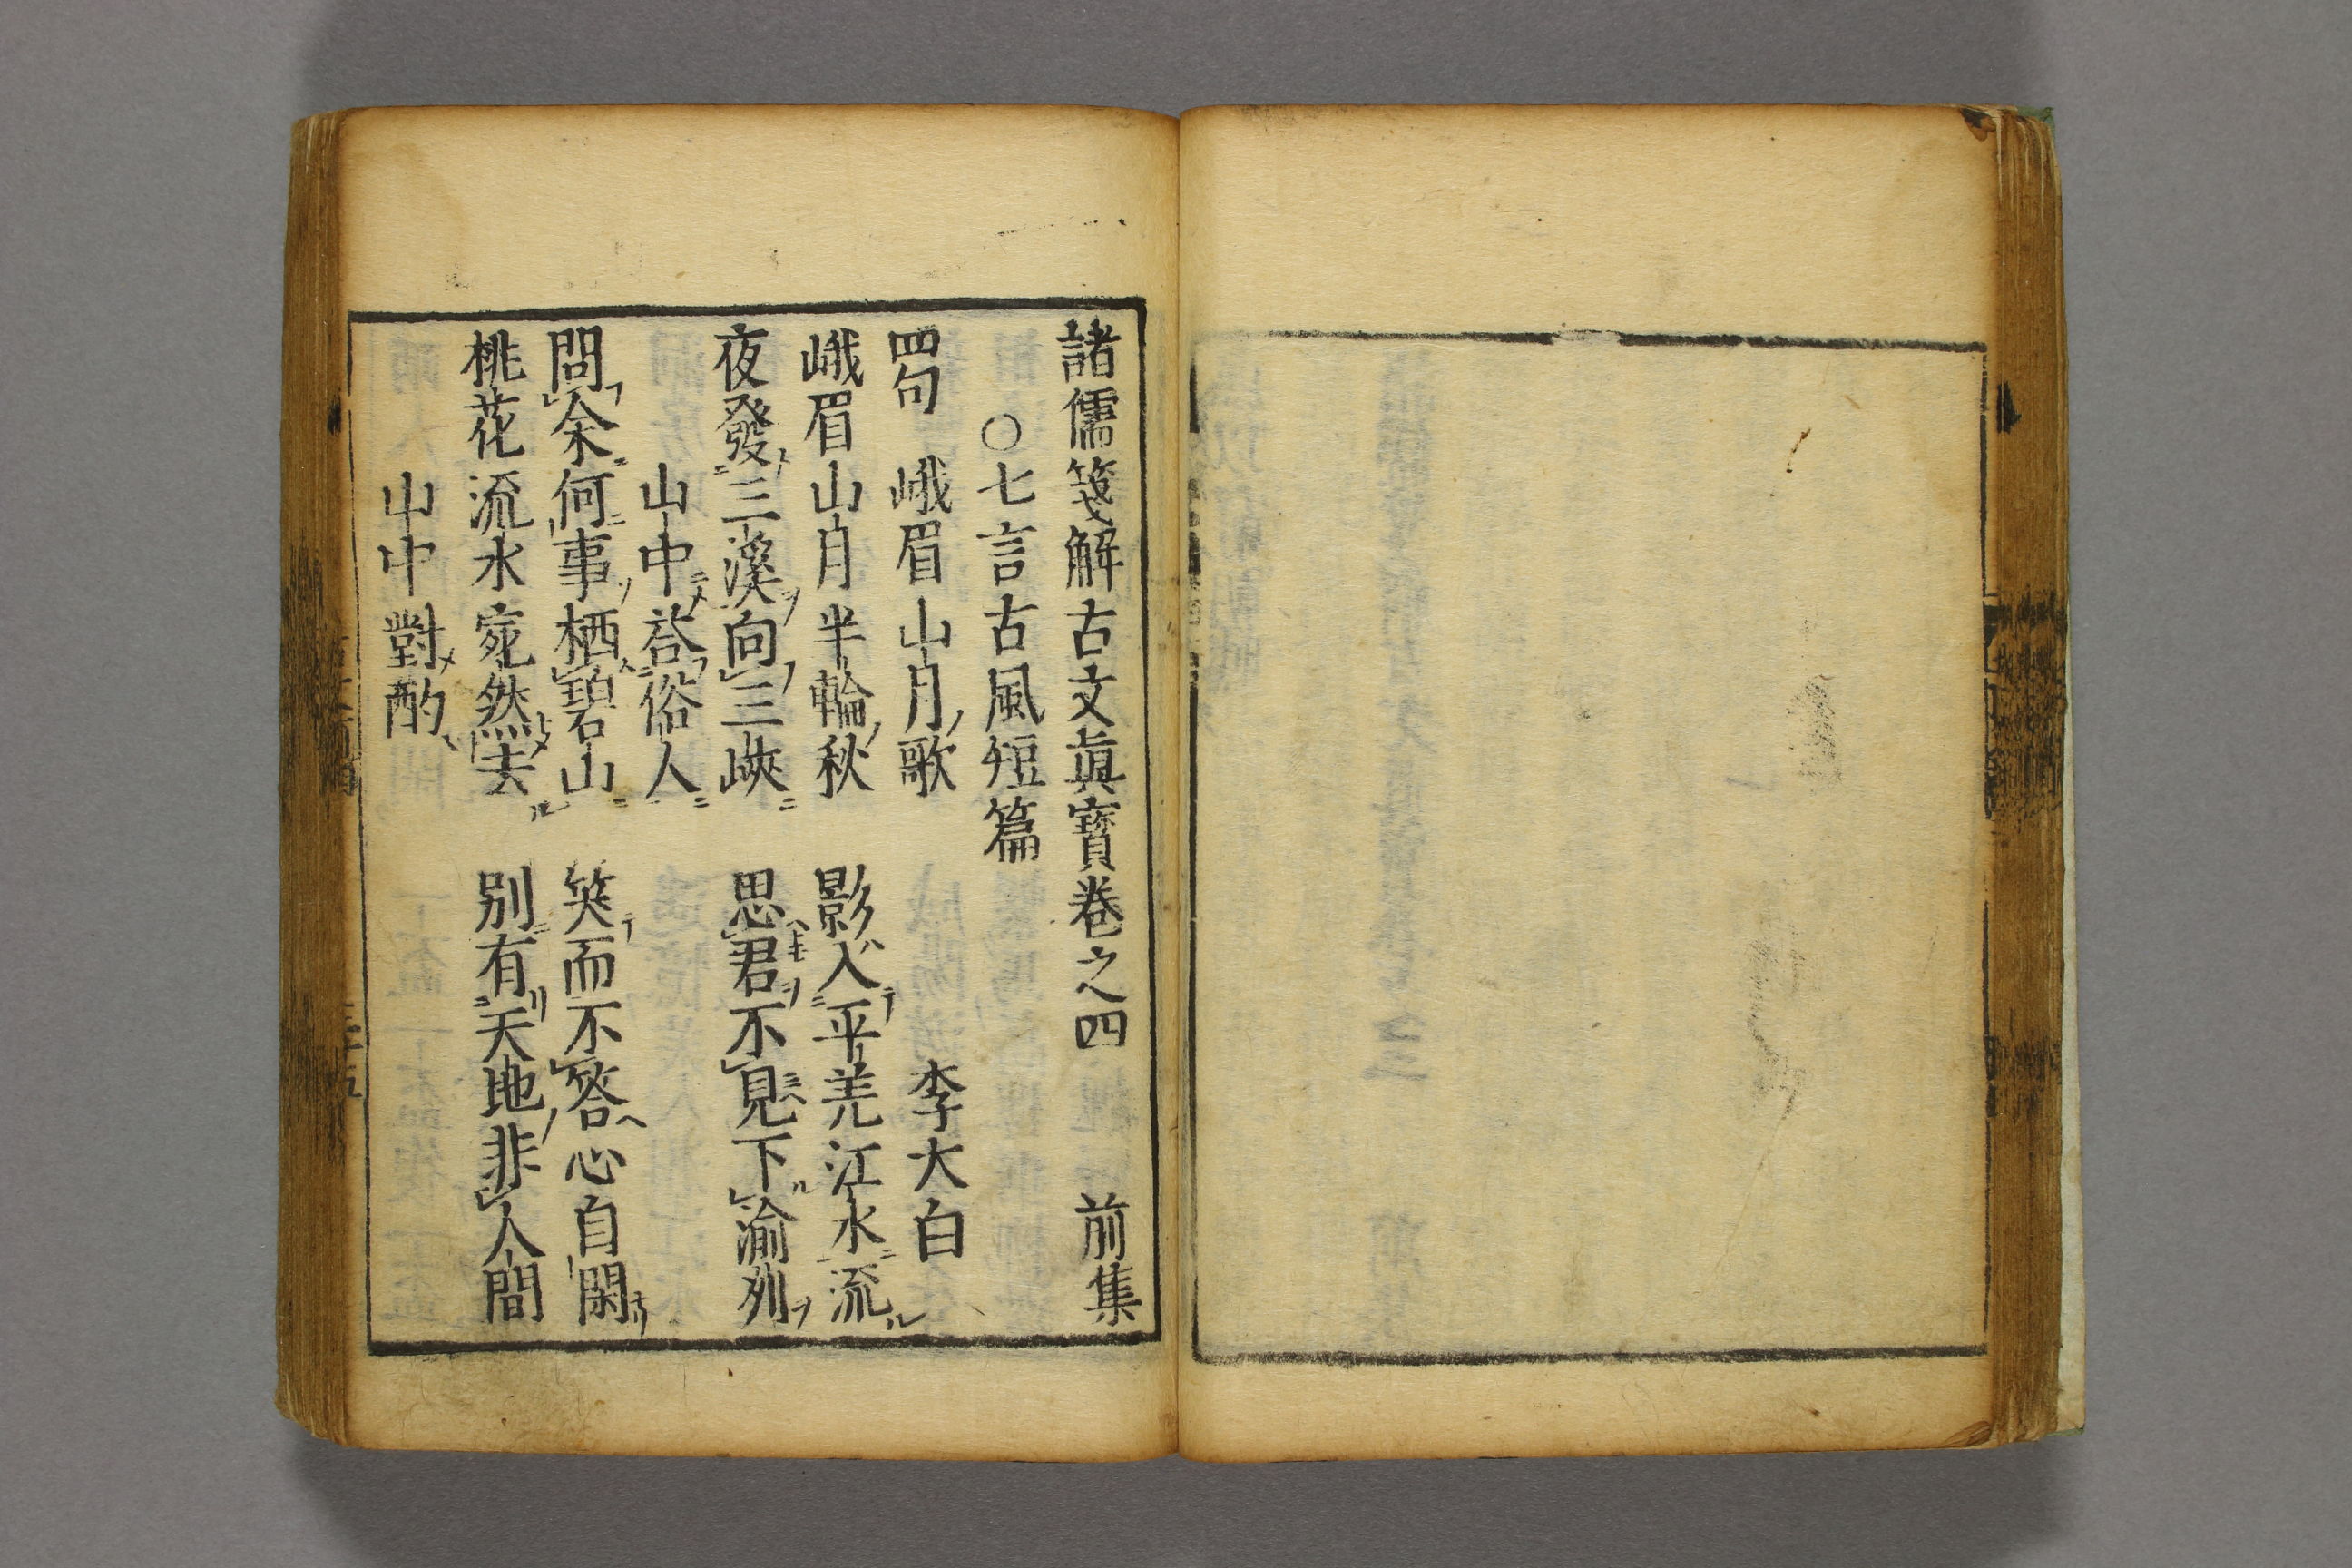 諸儒箋解古文眞寳卷之四 前集
○七言古風短篇
四句 峨眉山月歌 李大白
峨眉山月半輪秋 影入平羌江水流
夜發三溪向三峽 思君不見下渝州
山中荅俗人
問余何事栖碧山 笑而不答心自閑
桃花流水宛然去 別有天地非人間
山中對酌